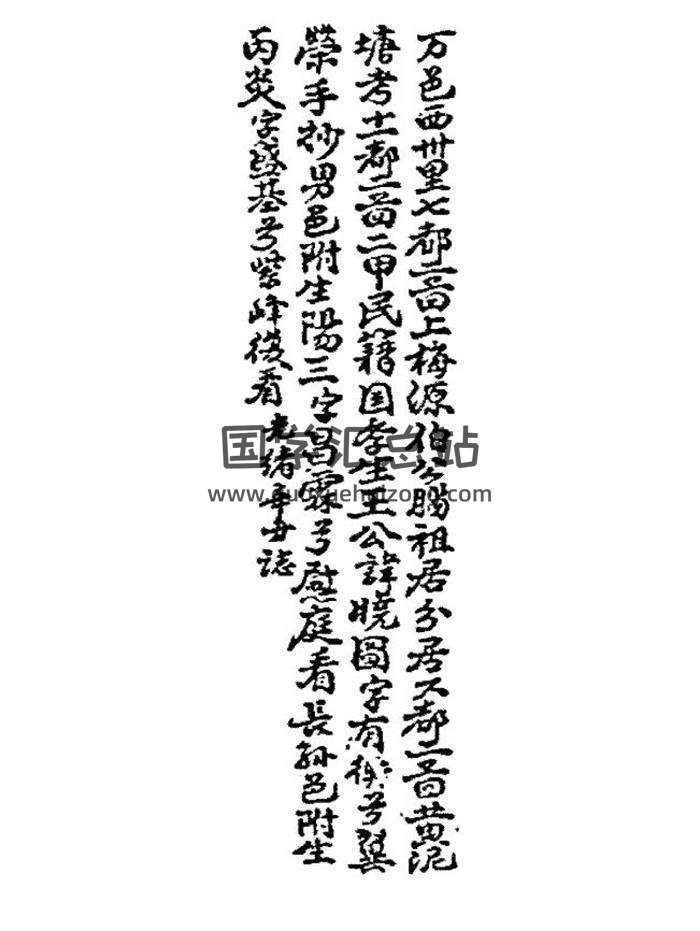 万邑西卅里七都一啚上梅源伯公腸祖居分居六都一啚黄泥
塘考士都二啚二甲民籍国孝生王公諱曉圖字有号巽
榮手抄男邑附生陽三字昌霖号慰庭看長孫邑附生
丙炎字盛基号紫峰後看 光绪辛丑誌
国学汇总站
www.guoxuehuizong.com